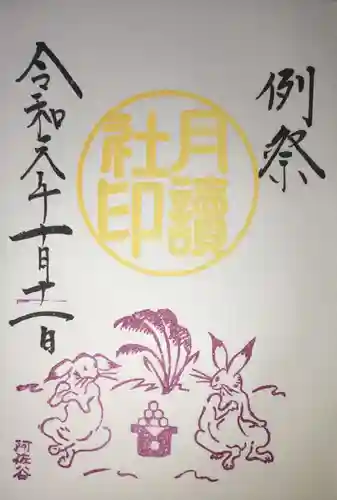 例祭
月讀
社印
令和元年十月十一日
阿佐谷